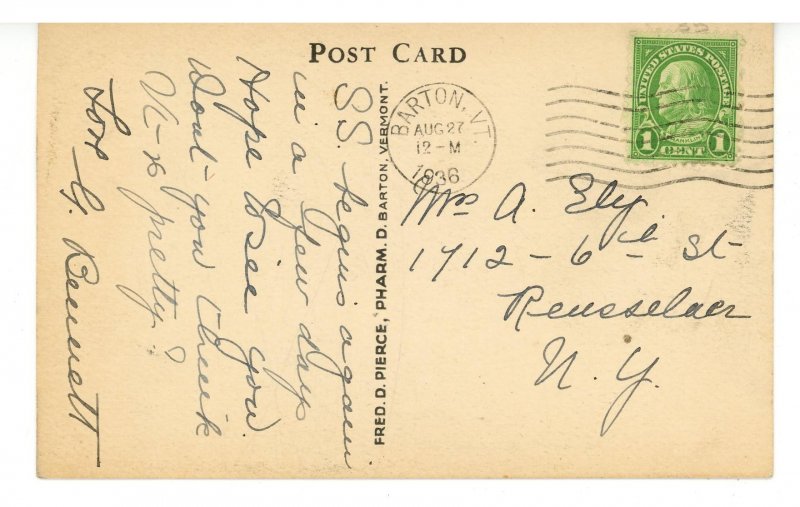 POST CARD
S.S. begins again
in a few days
Hope to see you
Dont you think
it is pretty?
G. Bennett
FRED. D. PIERCE, PHARM. D. BARTON, VERMONT.
BARTON, VT.
AUG 27
12-M
1936
UNITED STATES POSTAGE
FRANKLIN
1 CENT 1
Mrs A. Ely
1712 - 6th St
Rensselaer
N. Y.